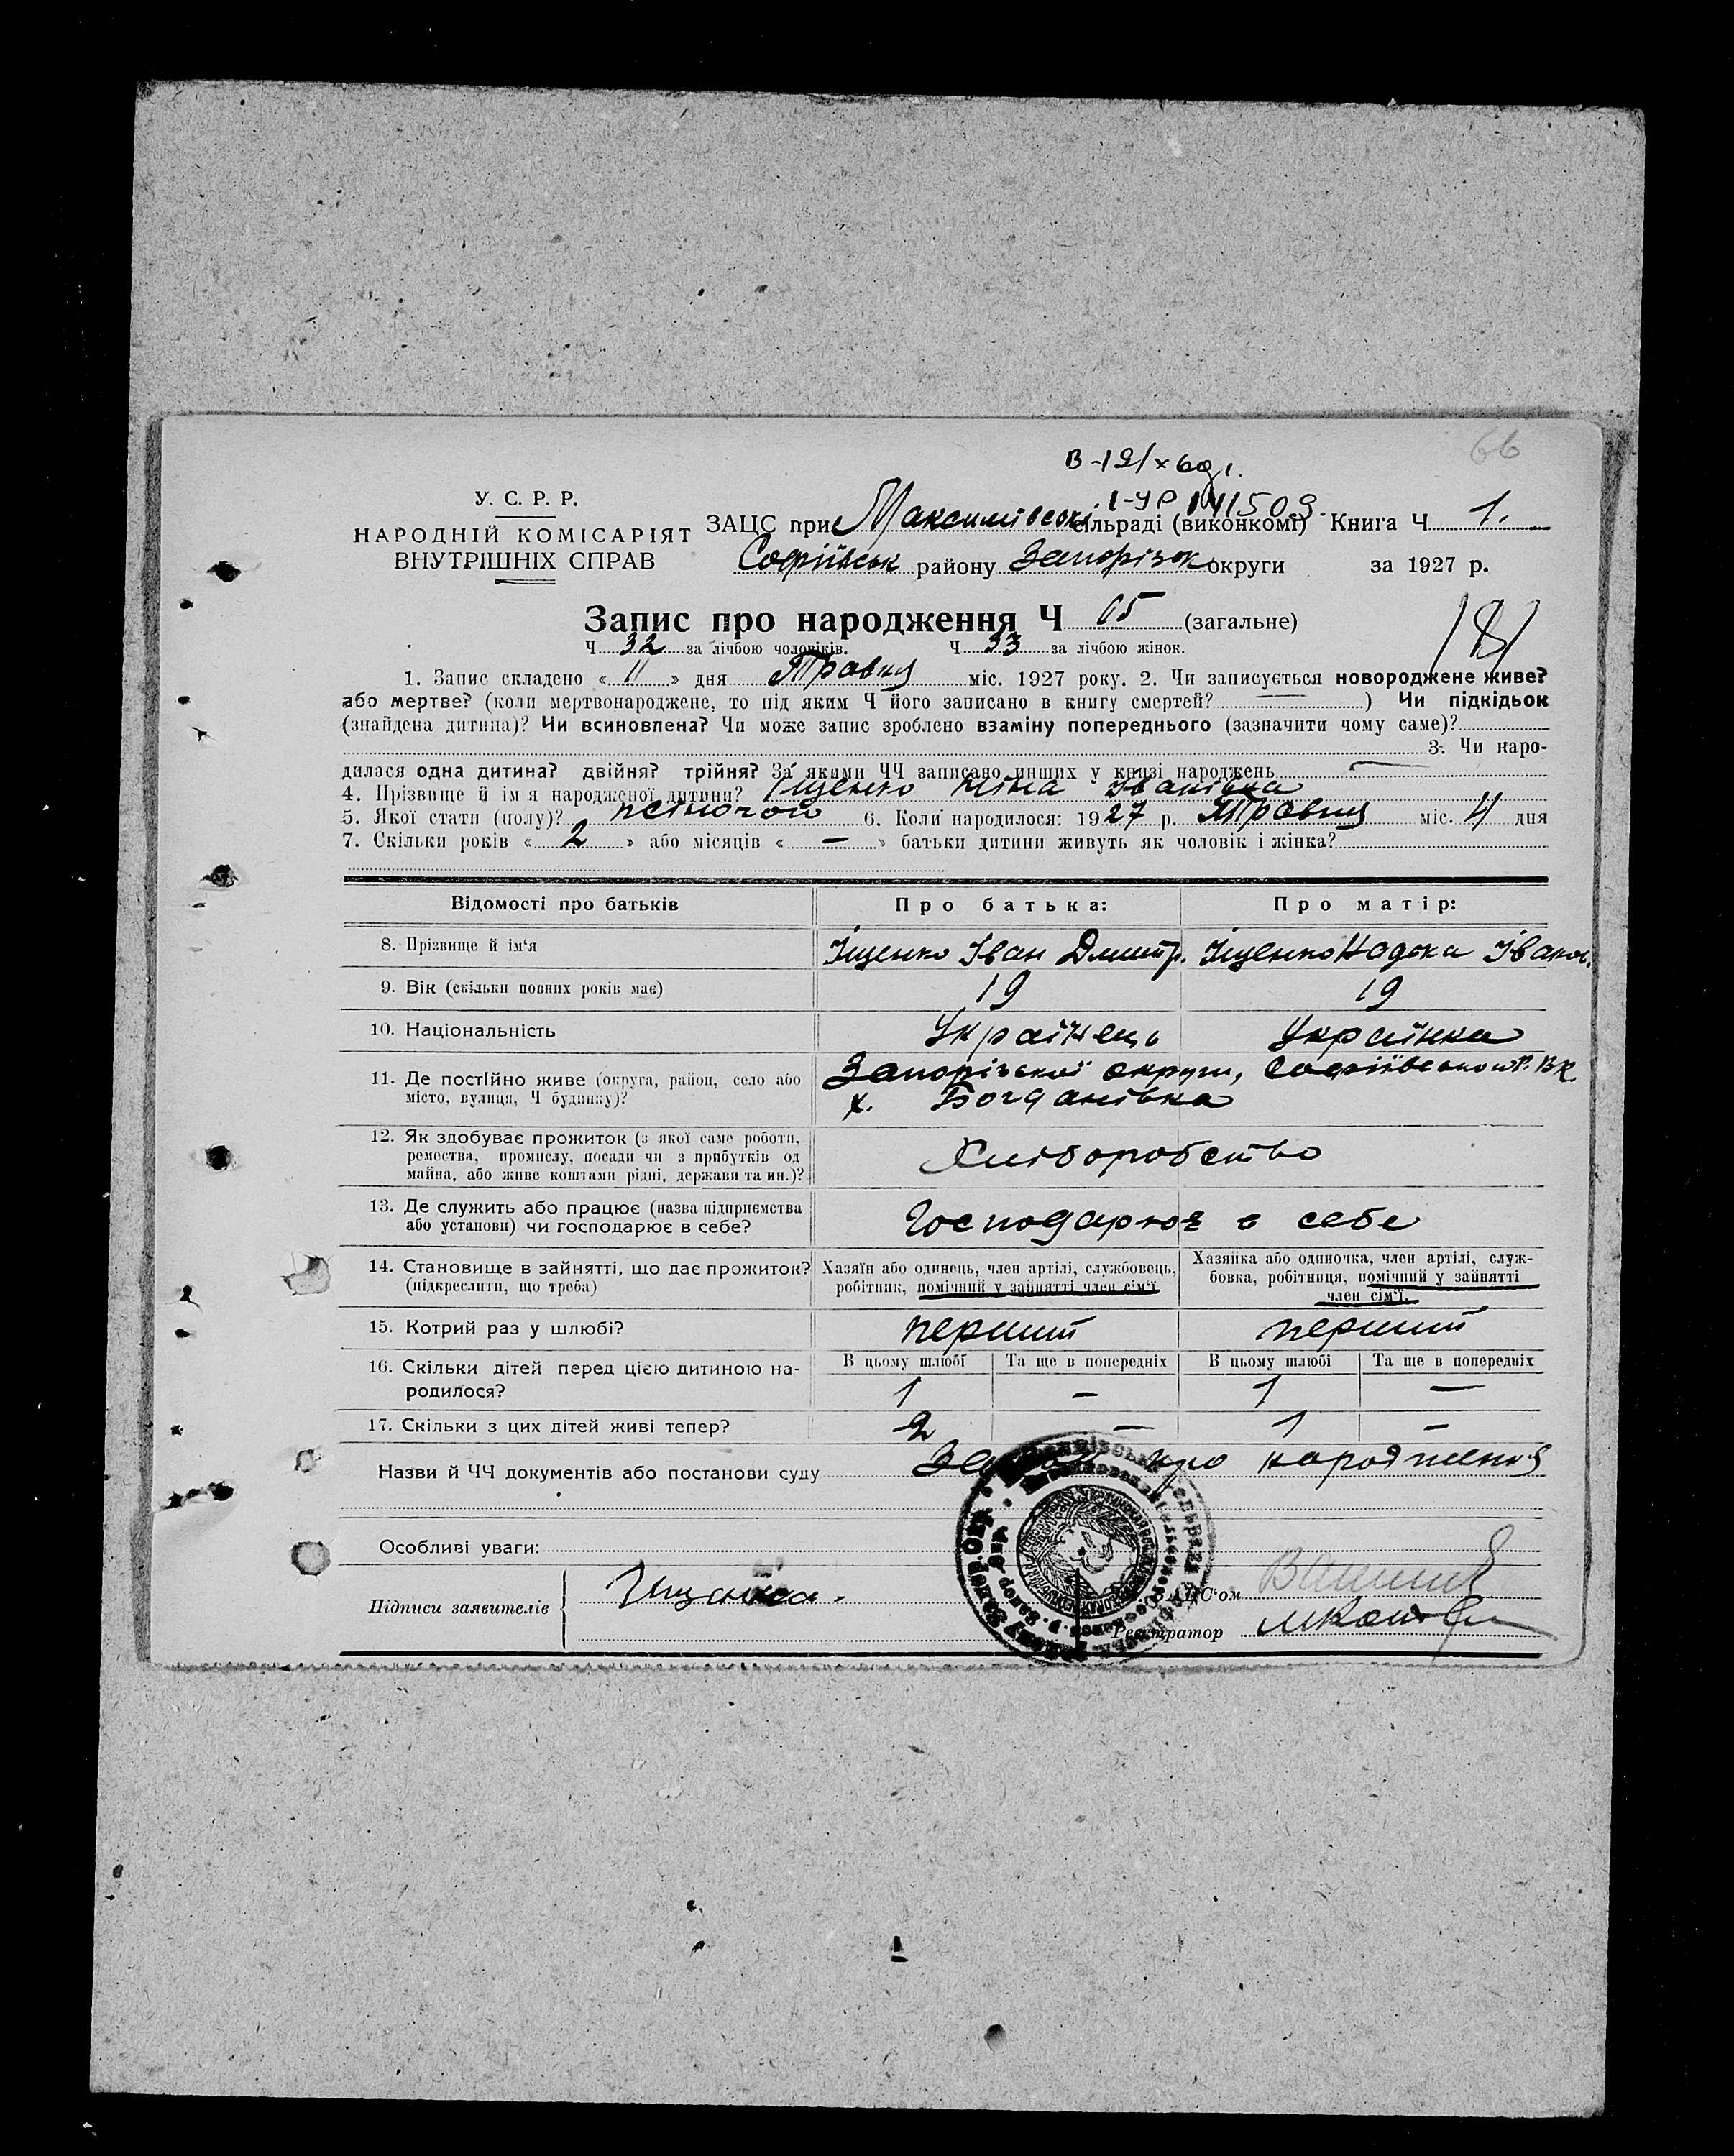 66
В-19/х 60 г.
І-УР №
У. С. Р. Р.
НАРОДНІЙ КОМІСАРІЯТ
ВНУТРІШНІХ СПРАВ
ЗАЦС при Максимівські сільраді (виконкомі) Книга Ч 1.
Софіївськ району Запорізьк округи за 1927 р.
Запис про народження Ч 65 (загальне)
181
Ч 32 за лічбою чоловіків. Ч 33 за лічбою жінок.
1. Запис складено « 11 » дня Травня міс. 1927 року. 2. Чи записується новороджене живе?
або мертве? (коли мертвонароджене, то під яким Ч його записано в книгу смертей? — ) Чи підкідьок
(знайдена дитина)? Чи всиновлена? Чи може запис зроблено взаміну попереднього (зазначити чому саме)?
3. Чи наро-
дилася одна дитина? двійня? трійня? За якими ЧЧ записано инших у книзі народжень —
4. Прізвище й ім'я народженої дитини? Іщенко Ніна Іванівна
5. Якої стати (полу)? жіночой 6. Коли народилося: 1927 р. Травня міс. 4 дня
7. Скільки років « 2 » або місяців « — » батьки дитини живуть як чоловік і жінка?
Відомості про батьків Про батька: Про матір:
8. Прізвище й ім'я Іщенко Іван Дмитр. Іщенко Надька Іванов.
9. Вік (скільки повних років має) 19 19
10. Національність Українець Українка
11. Де постІйно живе (округа, район, село або Запорізської округи, Софіївського Р.В.К.
місто, вулиця, Ч будинку)? х. Богданівка
12. Як здобуває прожиток (з якої саме роботи,
ремества, промислу, посади чи з прибутків од
майна, або живе коштами рідні, держави та ин.)? Хліборобство
13. Де служить або працює (назва підприємства
або установи) чи господарює в себе? Господарює в себе
14. Становище в зайнятті, що дає прожиток? Хазяїн або одинець, член артілі, службовець, Хазяйка або одиночка, член артілі, служ-
(підкреслити, що треба) робітник, помічний у зайнятті член сім'ї. бовка, робітниця, помічний у зайнятті
член сім'ї.
15. Котрий раз у шлюбі? перший перший
16. Скільки дітей перед цією дитиною на- В цьому шлюбі Та ще в попередніх В цьому шлюбі Та ще в попередніх
родилося? 1 — 1 —
17. Скільки з цих дітей живі тепер? 2 — 1 —
Назви й ЧЧ документів або постанови суду про народження
Особливі уваги:
Підписи заявителів Іщенко.
ЗАЦС'ом
Реєстратор